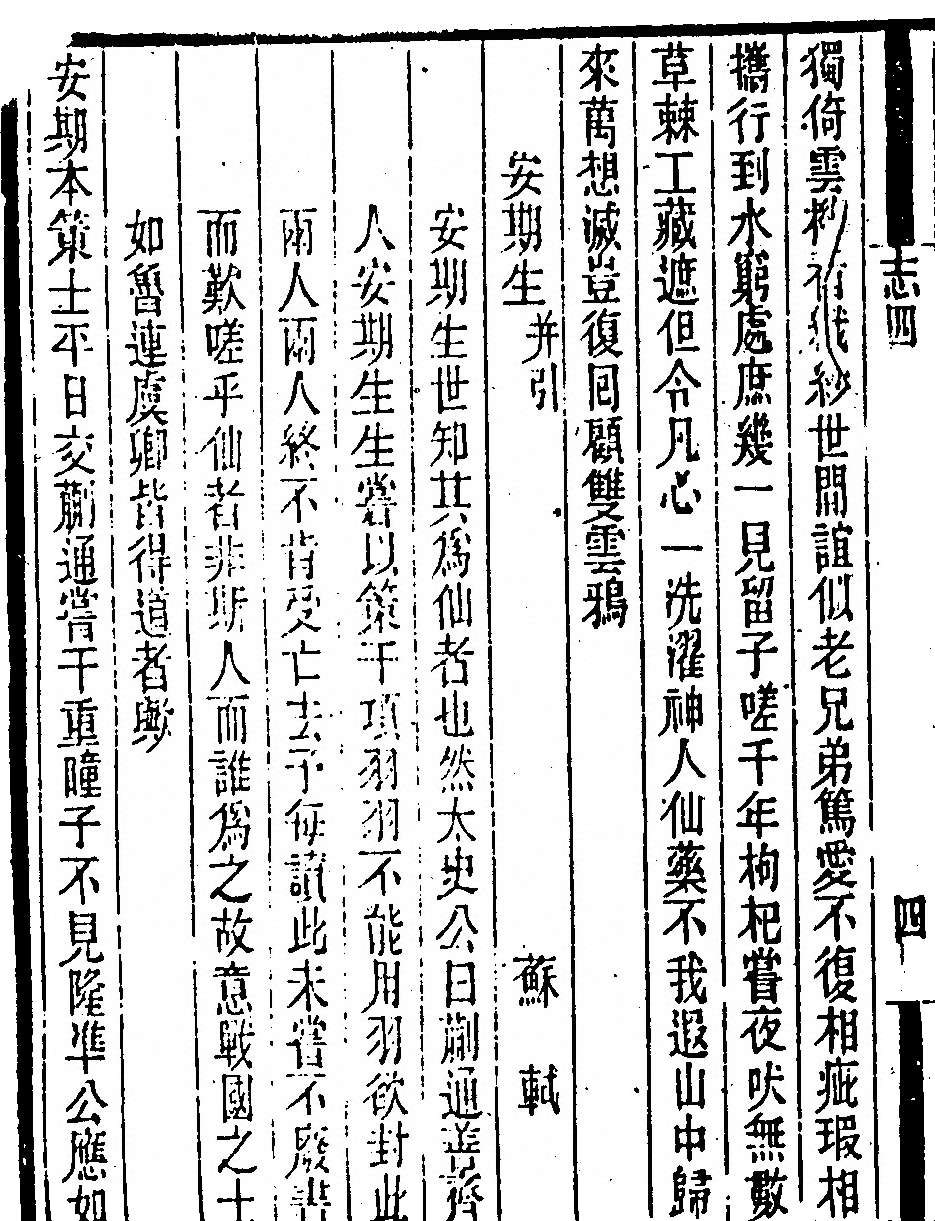 志四
四
獨倚雲 世間誼似老兄弟篤愛不復相疵瑕相
攜行到水窮處庶幾一見留子嗟千年枸杞嘗夜吠無數
草棘工藏遮但令凡心一洗濯神人仙藥不我遐山中歸
來萬想滅豈復囘顧雙雲鴉
安期生并引
蘇軾
安期生世知其爲仙者也然太史公曰蒯通善齊
人安期生生嘗以策干項羽羽不能用羽欲封此
兩人兩人終不肯受亡去予每讀此未嘗不廢書
而歎嗟乎仙者非斯人而誰爲之故意戰國之士
如魯連虞卿皆得道者歟
安期本策士平日交蒯通嘗干重瞳子不見隆準公應如